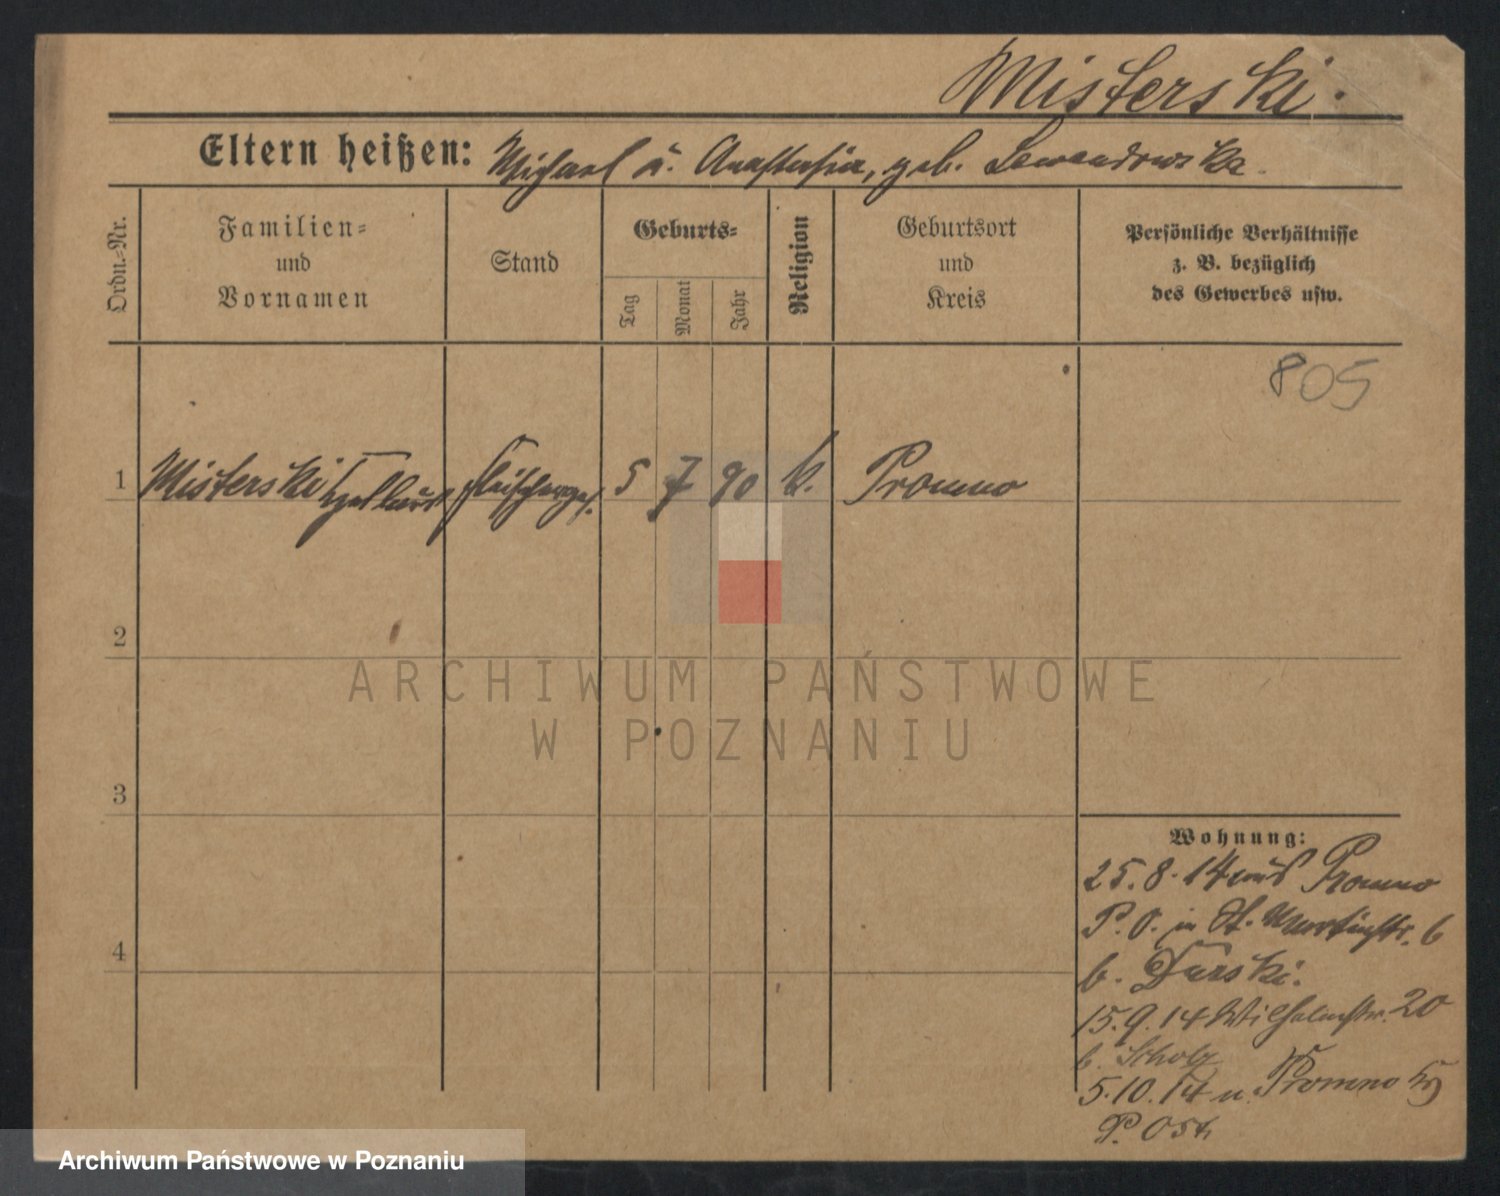 Misterski.
Eltern heißen: Michael u. Anastasia, geb. Lewandowska.
Ordn.=Nr.
Familien=
und
Vornamen
Stand
Geburts=
Tag
Monat
Jahr
Religion
Geburtsort
und
Kreis
Persönliche Verhältnisse
z. B. bezüglich
des Gewerbes usw.
805
1 Misterski Fleischerges. 5 7 90 k. Promno
2
3
4
Wohnung:
25.8.14 aus Promno
P.O. in St. Martinstr. 6
b. Turski.
15.9.14 Wilhelmstr. 20
b. Scholz
5.10.14 n. Promno Kr
P. Ost
ARCHIWUM PAŃSTWOWE
W POZNANIU
Archiwum Państwowe w Poznaniu